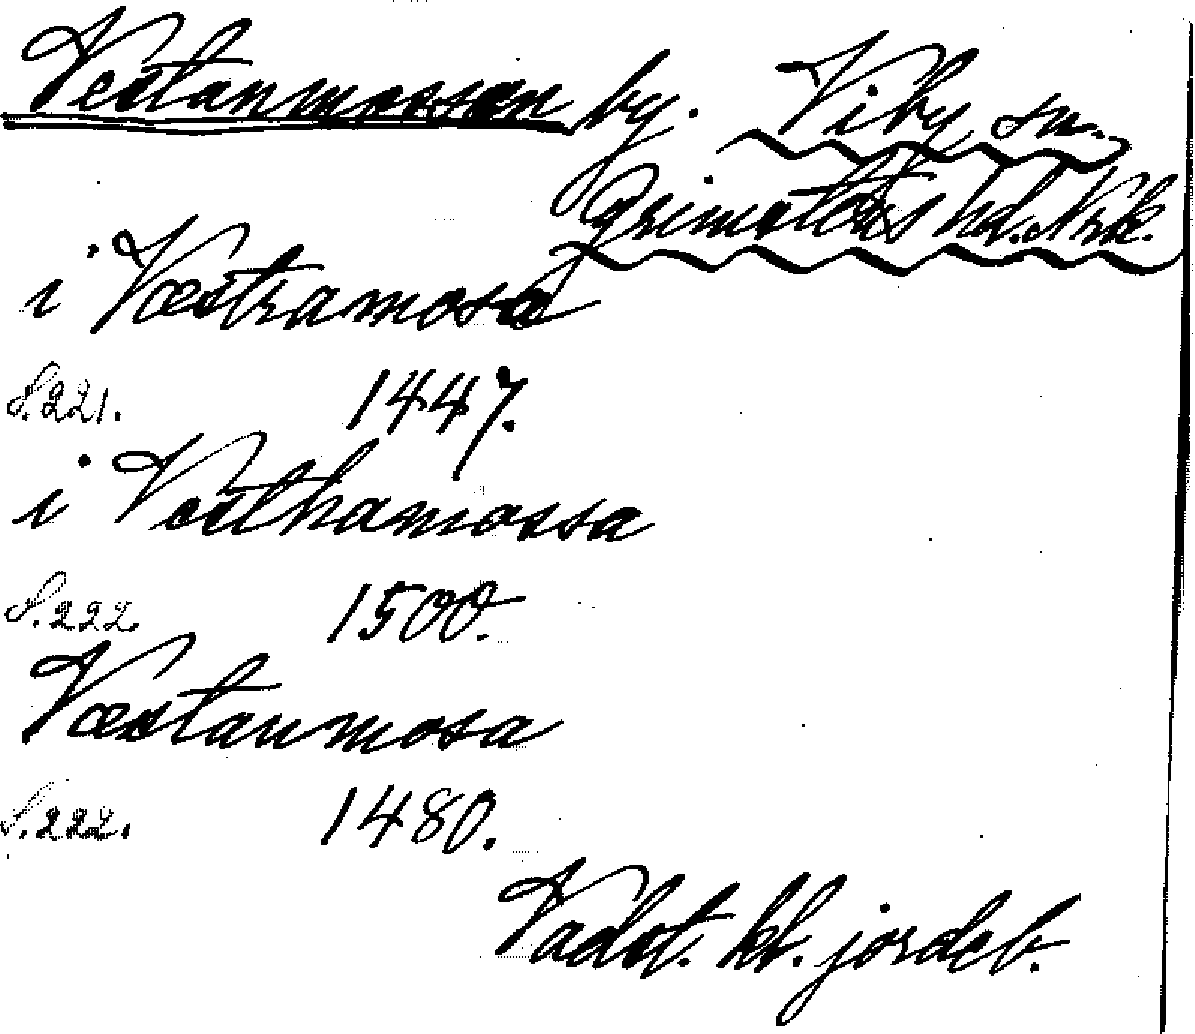 Vestanmossen by. Viby sn.
Grimstens hd. Nrk.
i Væstramosa
S. 221. 1447.
i Vesthamossa
S. 222. 1500.
Væstanmosa
S. 222. 1480.
Vadst. kl. jordeb.